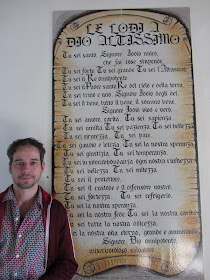 LE LODI DI
DIO ALTISSIMO
Tu sei santo, Signore Iddio unico,
che fai cose stupende.
Tu sei forte. Tu sei grande. Tu sei l'Altissimo.
Tu sei il Re onnipotente
Tu sei il Padre santo, Re del cielo e della terra.
Tu sei trino e uno, Signore Iddio degli dei.
Tu sei il bene, tutto il bene, il sommo bene.
Signore Iddio
Tu sei amore, carità. Tu sei sapienza.
Tu sei umiltà. Tu sei pazienza. Tu sei bellezza
Tu sei sicurezza. Tu sei pace.
Tu sei gaudio e letizia. Tu sei la nostra speranza
Tu sei giustizia. Tu sei temperanza.
Tu sei in sovrabbondanza ogni nostra ricchezza.
Tu sei bellezza. Tu sei mitezza.
Tu sei il protettore.
Tu sei il custode e il difensore nostro.
Tu sei fortezza. Tu sei refrigerio.
sei la nostra speranza.
sei la nostra fede. Tu sei la nostra carità.
sei tutta la nostra
sei la nostra vita eterna, grande e ammirabile
Signore, Dio onnipotente,
misericordioso salvatore